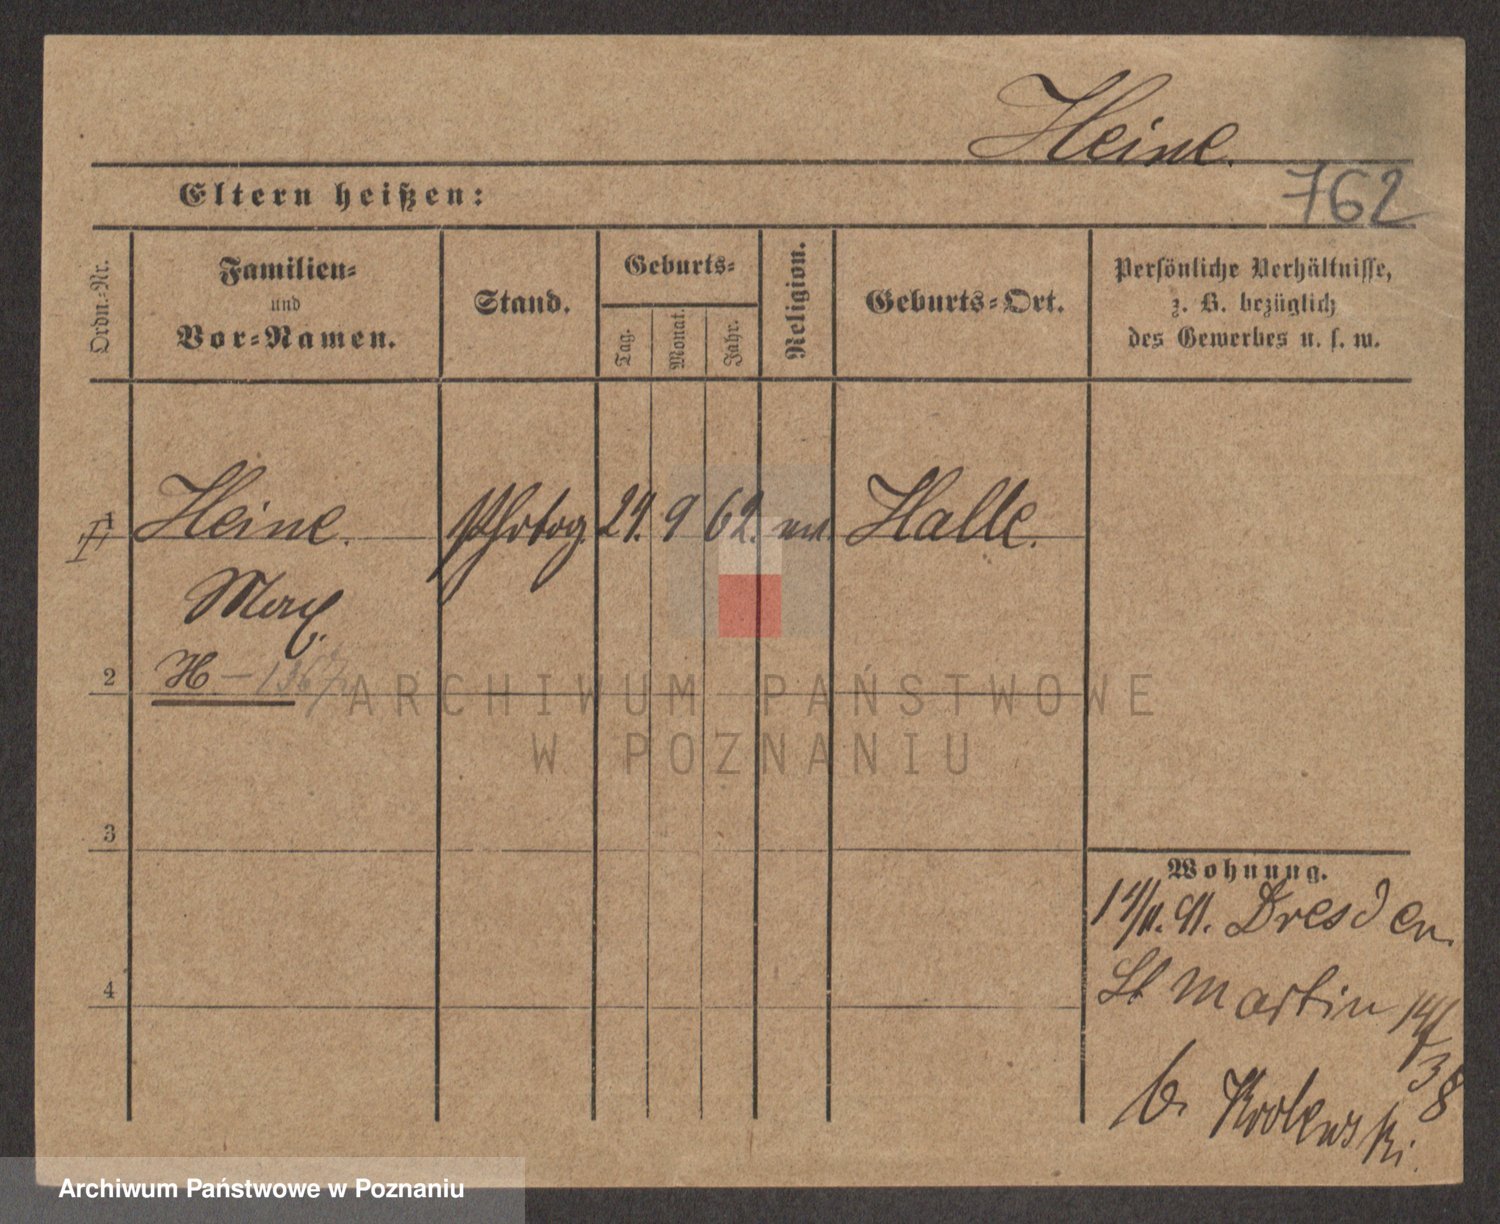 Heine.
762
Eltern heißen:
Ordn.-Nr.
Familien-
und
Vor-Namen.
Stand.
Geburts-
Tag.
Monat.
Jahr.
Religion.
Geburts-Ort.
Persönliche Verhältnisse,
z. B. bezüglich
des Gewerbes u. s. w.
1
Heine. Phrtog 24. 9 62. ev. Halle.
Max.
2
H
3
4
Wohnung.
14/11. 91. Dresden.
St Martin
b. Krolewski.
ARCHIWUM PAŃSTWOWE
W POZNANIU
Archiwum Państwowe w Poznaniu